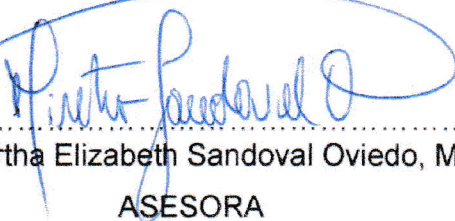 Mirtha Sandoval O
rtha Elizabeth Sandoval Oviedo, M
ASESORA